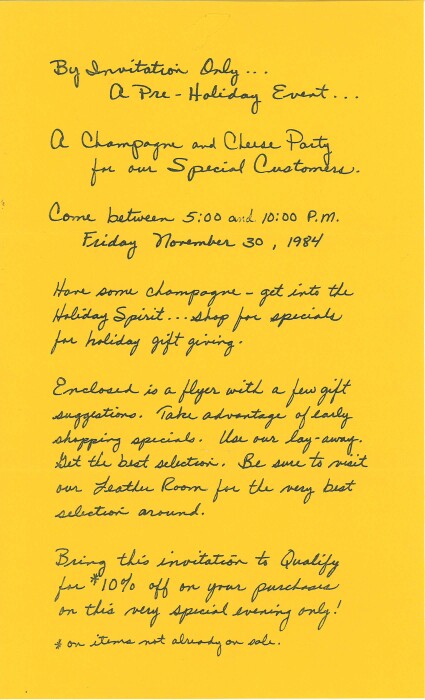 By Invitation Only...
A Pre-Holiday Event...
A Champagne and Cheese Party
for our Special Customers.
Come between 5:00 and 10:00 P.M.
Friday November 30, 1984
Have some champagne - get into the
Holiday Spirit... shop for specials
for holiday gift giving.
Enclosed is a flyer with a few gift
suggestions. Take advantage of early
shopping specials. Use our lay-away.
Get the best selection. Be sure to visit
our Leather Room for the very best
selection around.
Bring this invitation to Qualify
for *10% off on your purchases
on this very special evening only!
* on items not already on sale.